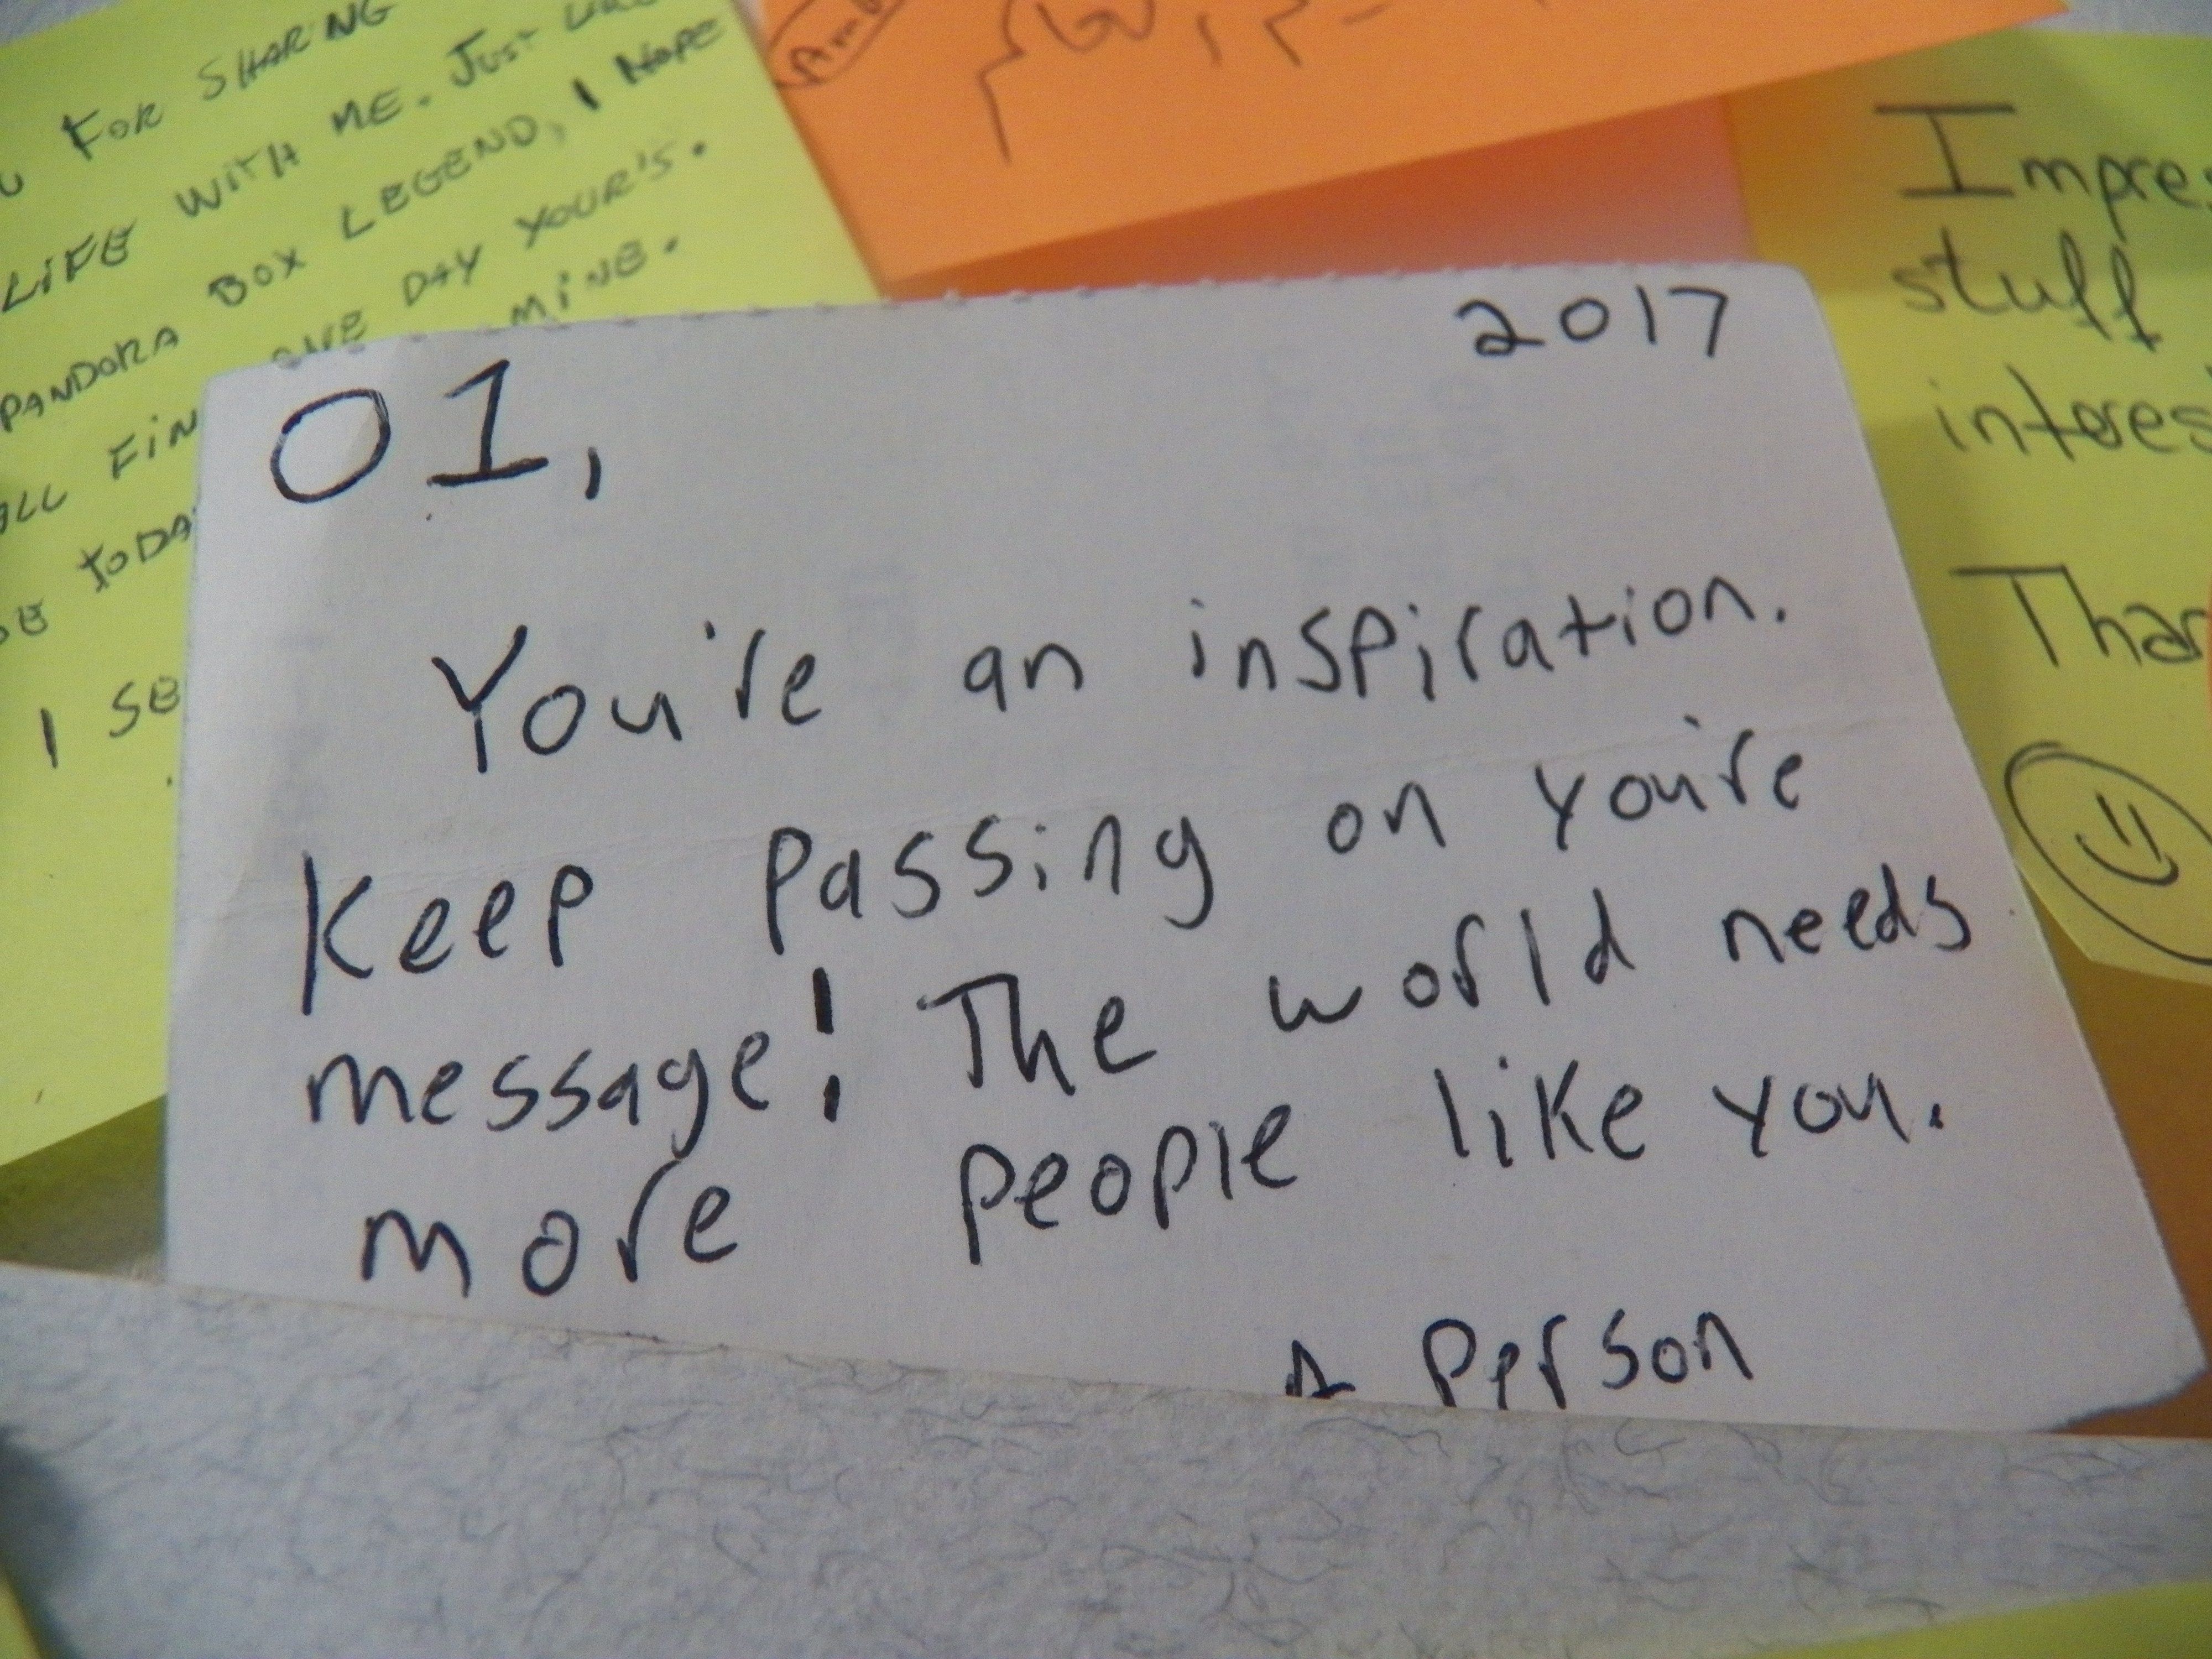 FOR SHARING
LIFE WITH ME. JUST
PANDORA BOX LEGEND, I HOPE
ONE DAY YOUR'S.
MINE.
TODA
I SE
Impres
stuff
interes
Than
2017
01,
You're an inspiration.
Keep passing on you're
message! The world needs
more people like you.
A Person